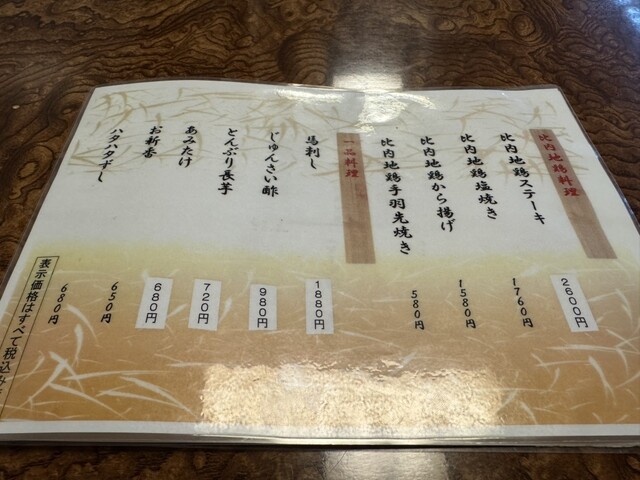 比内地鶏料理
比内地鶏ステーキ 2600円
比内地鶏塩焼き 1760円
比内地鶏から揚げ 1580円
比内地鶏手羽先焼き 580円
一品料理
馬刺し 1880円
じゅんさい酢 980円
とんぶり長芋 720円
あみたけ 680円
お新香 650円
ハタハタずし 680円
表示価格はすべて税込み